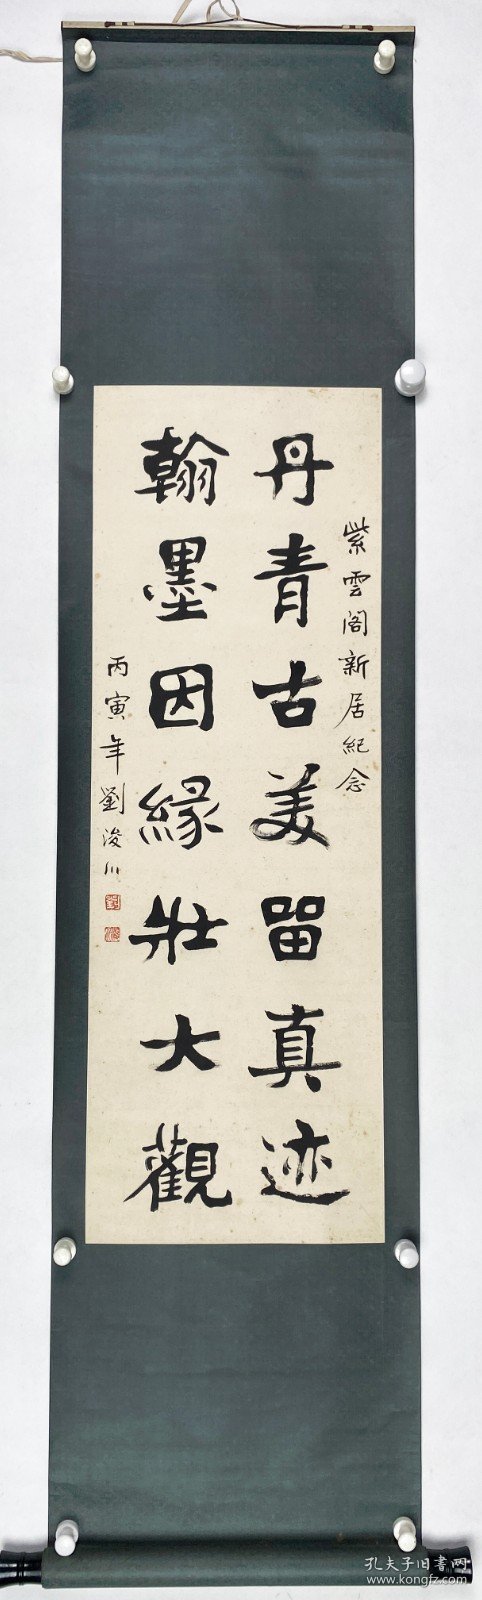 紫雲阁新居紀念
丹青古美留真迹
翰墨因緣壯大觀
丙寅年劉浚川
孔夫子旧书网
www.kongfz.com